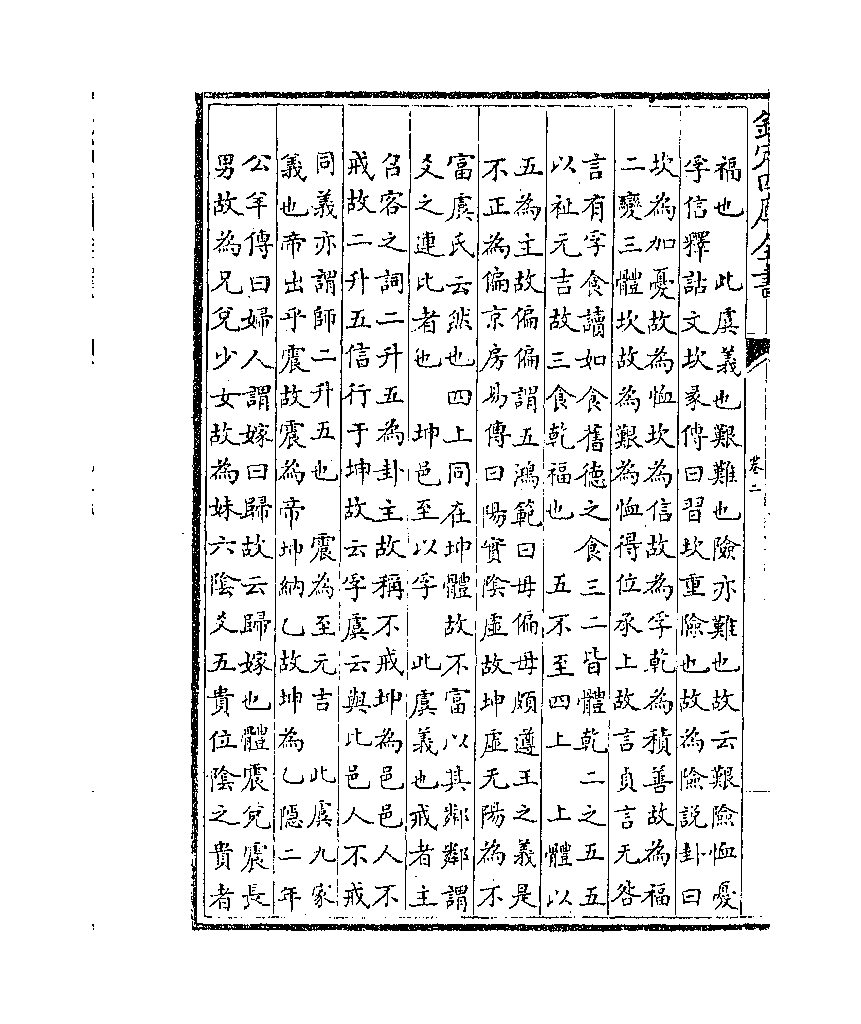 欽定四庫全書
卷二
福也　此虞義也艱難也險亦難也故云艱險恤憂
孚信釋詁文坎彖傳曰習坎重險也故為險說卦曰
坎為加憂故為恤坎為信故為孚乾為積善故為福
二變三體坎故為艱為恤得位承上故言貞言无咎
言有孚食讀如食舊德之食三二皆體乾二之五五
以祉元吉故三食乾福也　五不至四上　上體以
五為主故偏偏謂五鴻範曰毋偏毋頗遵王之義是
不正為偏京房易傳曰陽實陰虛故坤虛无陽為不
富虞氏云然也四上同在坤體故不富以其鄰鄰謂
爻之連比者也　坤邑至以孚　此虞義也戒者主
召客之詞二升五為卦主故稱不戒坤為邑邑人不
戒故二升五信行于坤故云孚虞云與比邑人不戒
同義亦謂師二升五也　震為至元吉　此虞九家
義也帝出乎震故震為帝坤納乙故坤為乙隱二年
公羊傳曰婦人謂嫁曰歸故云歸嫁也體震兌震長
男故為兄兌少女故為妹六陰爻五貴位陰之貴者